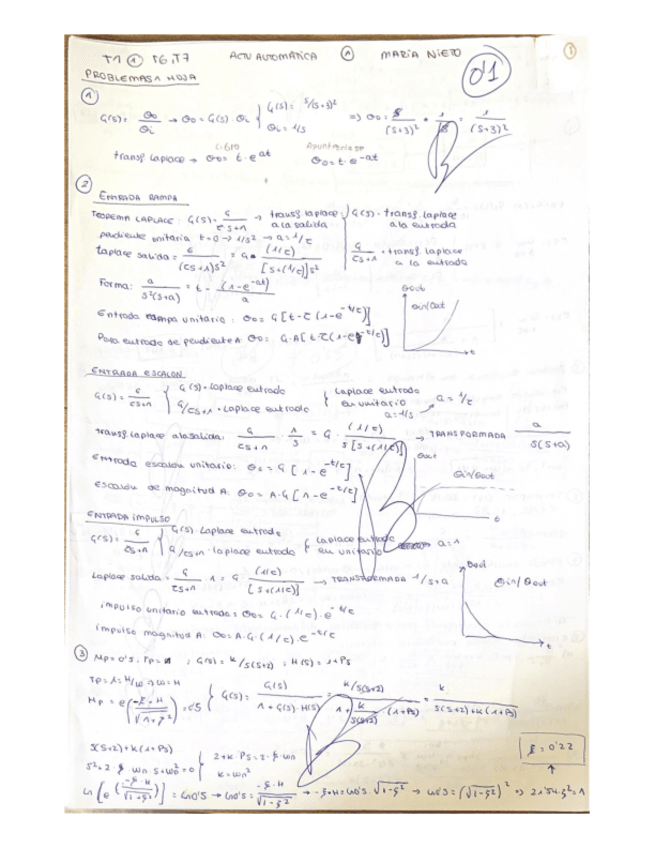 T1 ① T6,T7 ACTU AUTOMÁTICA ① MARÍA NIETO
PROBLEMAS 1 HOJA
0'1
①
G(s) = θo/θi → θo = G(s)·θi { G(s) = s/(s+3)² θi = 1/s ⇒ θo = s/(s+3)² · 1/s = 1/(s+3)²
Libro Apuntes clase
transf Laplace → θo = t·e^-at θo = t·e^-at
② ENTRADA RAMPA
TEOREMA LAPLACE: G(s) = G/τs+1 → transf Laplace a la salida { G(s)· transf. Laplace a la entrada
pendiente unitaria t=0 → 1/s² → a = 1/τ G/τs+1 · transf Laplace a la entrada
Laplace salida = G/(τs+1)s² = G· (1/τ)/[s+(1/τ)]s²
Forma: a/s²(s+a) = t - (1-e^-at)/a
θout
Entrada rampa unitaria: θo = G[t-τ(1-e^-t/τ)] θin/θout
Para entrada de pendiente A: θo = G·A[t-τ(1-e^-t/τ)]
t
ENTRADA ESCALÓN
G(s) = G/τs+1 { G(s)· Laplace entrada G/τs+1 · Laplace entrada { Laplace entrada en unitario a=1/s a = 1/τ
transf. Laplace a la salida: G/τs+1 · 1/s = G· (1/τ)/s[s+(1/τ)] → TRANSFORMADA a/s(s+a)
θout
Entrada escalón unitario: θo = G[1-e^-t/τ] θin/θout
escalón de magnitud A: θo = A·G[1-e^-t/τ]
t
ENTRADA IMPULSO
G(s) = G/τs+1 { G(s)· Laplace entrada G/τs+1 · Laplace entrada { Laplace entrada en unitario a=1
θout
Laplace salida = G/τs+1 · 1 = G (1/τ)/[s+(1/τ)] → TRANSFORMADA 1/s+a θin/θout
impulso unitario entrada = θo = G·(1/τ)·e^-t/τ
impulso magnitud A: θo = A·G·(1/τ)·e^-t/τ
t
③ Mp = 0'5. Tp = π ; G(s) = K/s(s+2) ; H(s) = 1+Ps
Mp = e(-ξ·π/√1-ξ²) = 0'5 { G(s) = G(s)/1+G(s)·H(s) = K/s(s+2) / 1+ K/s(s+2) ·(1+Ps) = K/s(s+2)+K(1+Ps)
s(s+2)+K(1+Ps)
s²+2·ξ·ωn·s+ωn² = 0 { 2+K·Ps = 2·ξ·ωn K = ωn²
ξ = 0'22